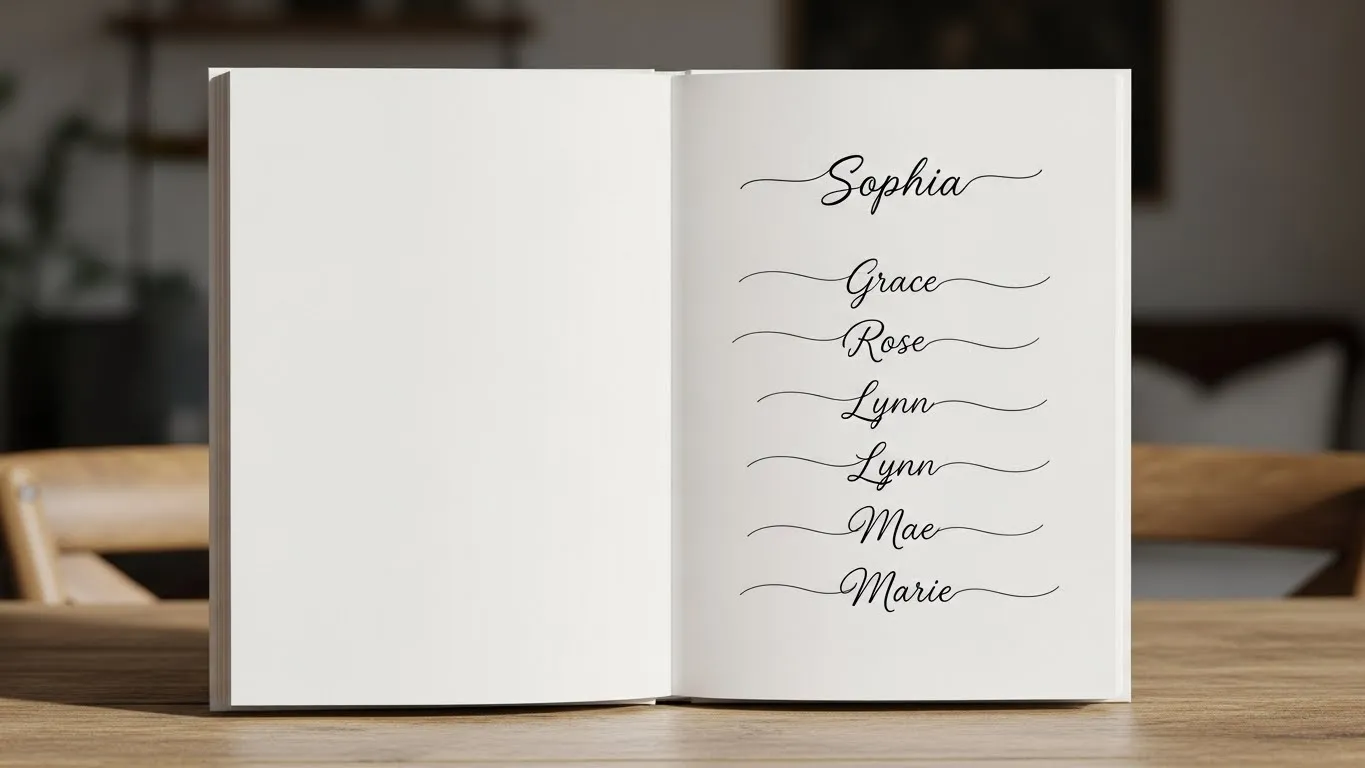 Sophia
Grace
Rose
Lynn
Lynn
Mae
Marie